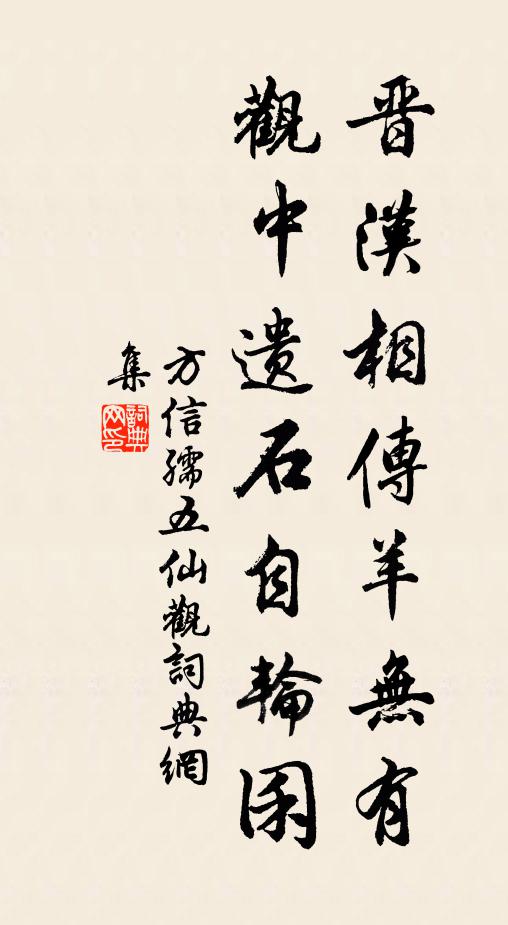 晋漢相傳羊無有
觀中遺石自輪囷
方信孺五仙觀詞典網
集
詞典
网印